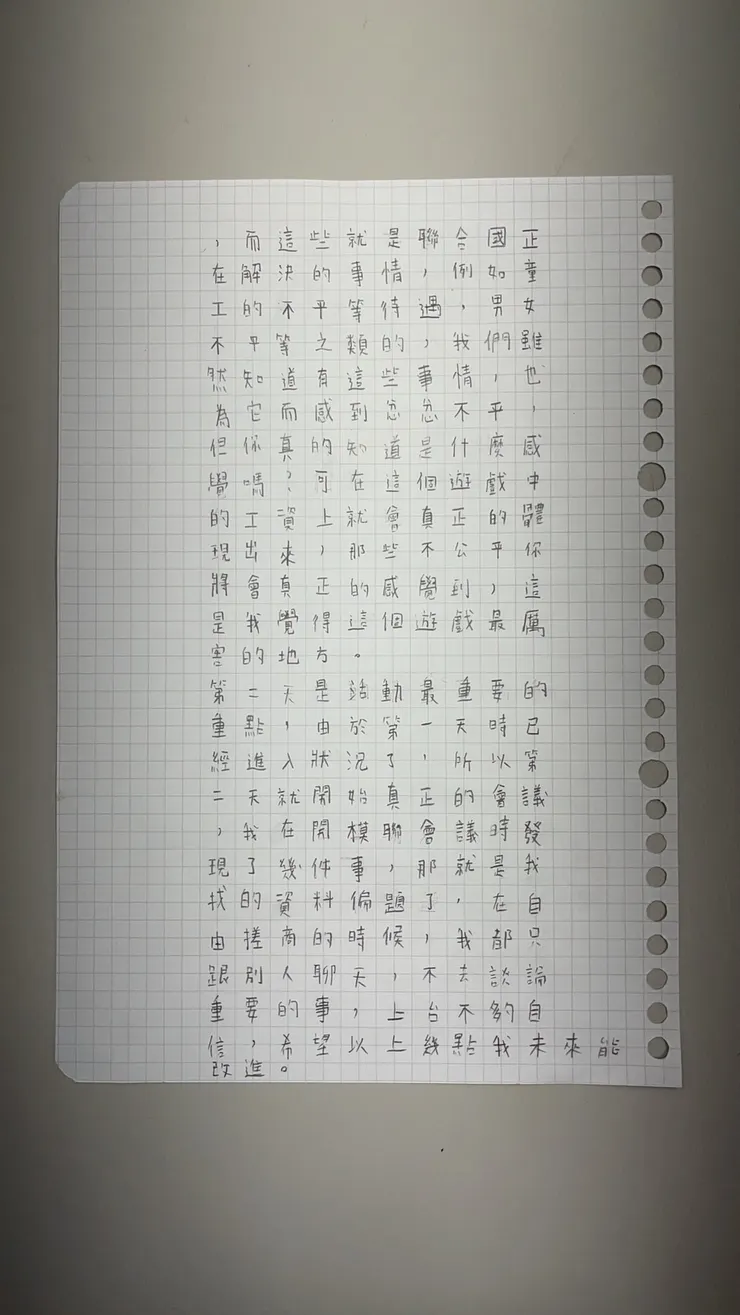 ，而這些就是聯合國正
在解決的事情，例如童
工的不平等待遇，男女
不平等之類的，我們雖
然知道有這些事情，也
為它而感到忿忿不平，
但你真的知道是什麼感
覺嗎？可在這個遊戲中
的工資上就會真正的體
現出來，那些不公平你
將會真正的感覺到，這
是我覺得這個遊戲最厲
害的地方。
第二天是活動最重要的
重點，由於第一天時已
經進入狀況了，所以第
二天就開始真正的會議
，我在開模聯會議時發
現了幾件事，那就是我
找的資料偏題了，在自
由搓商的時候，我都只
跟別人聊天，不去談論
重要的事，上台不夠自
信，希望以上幾點我未來能
改進。